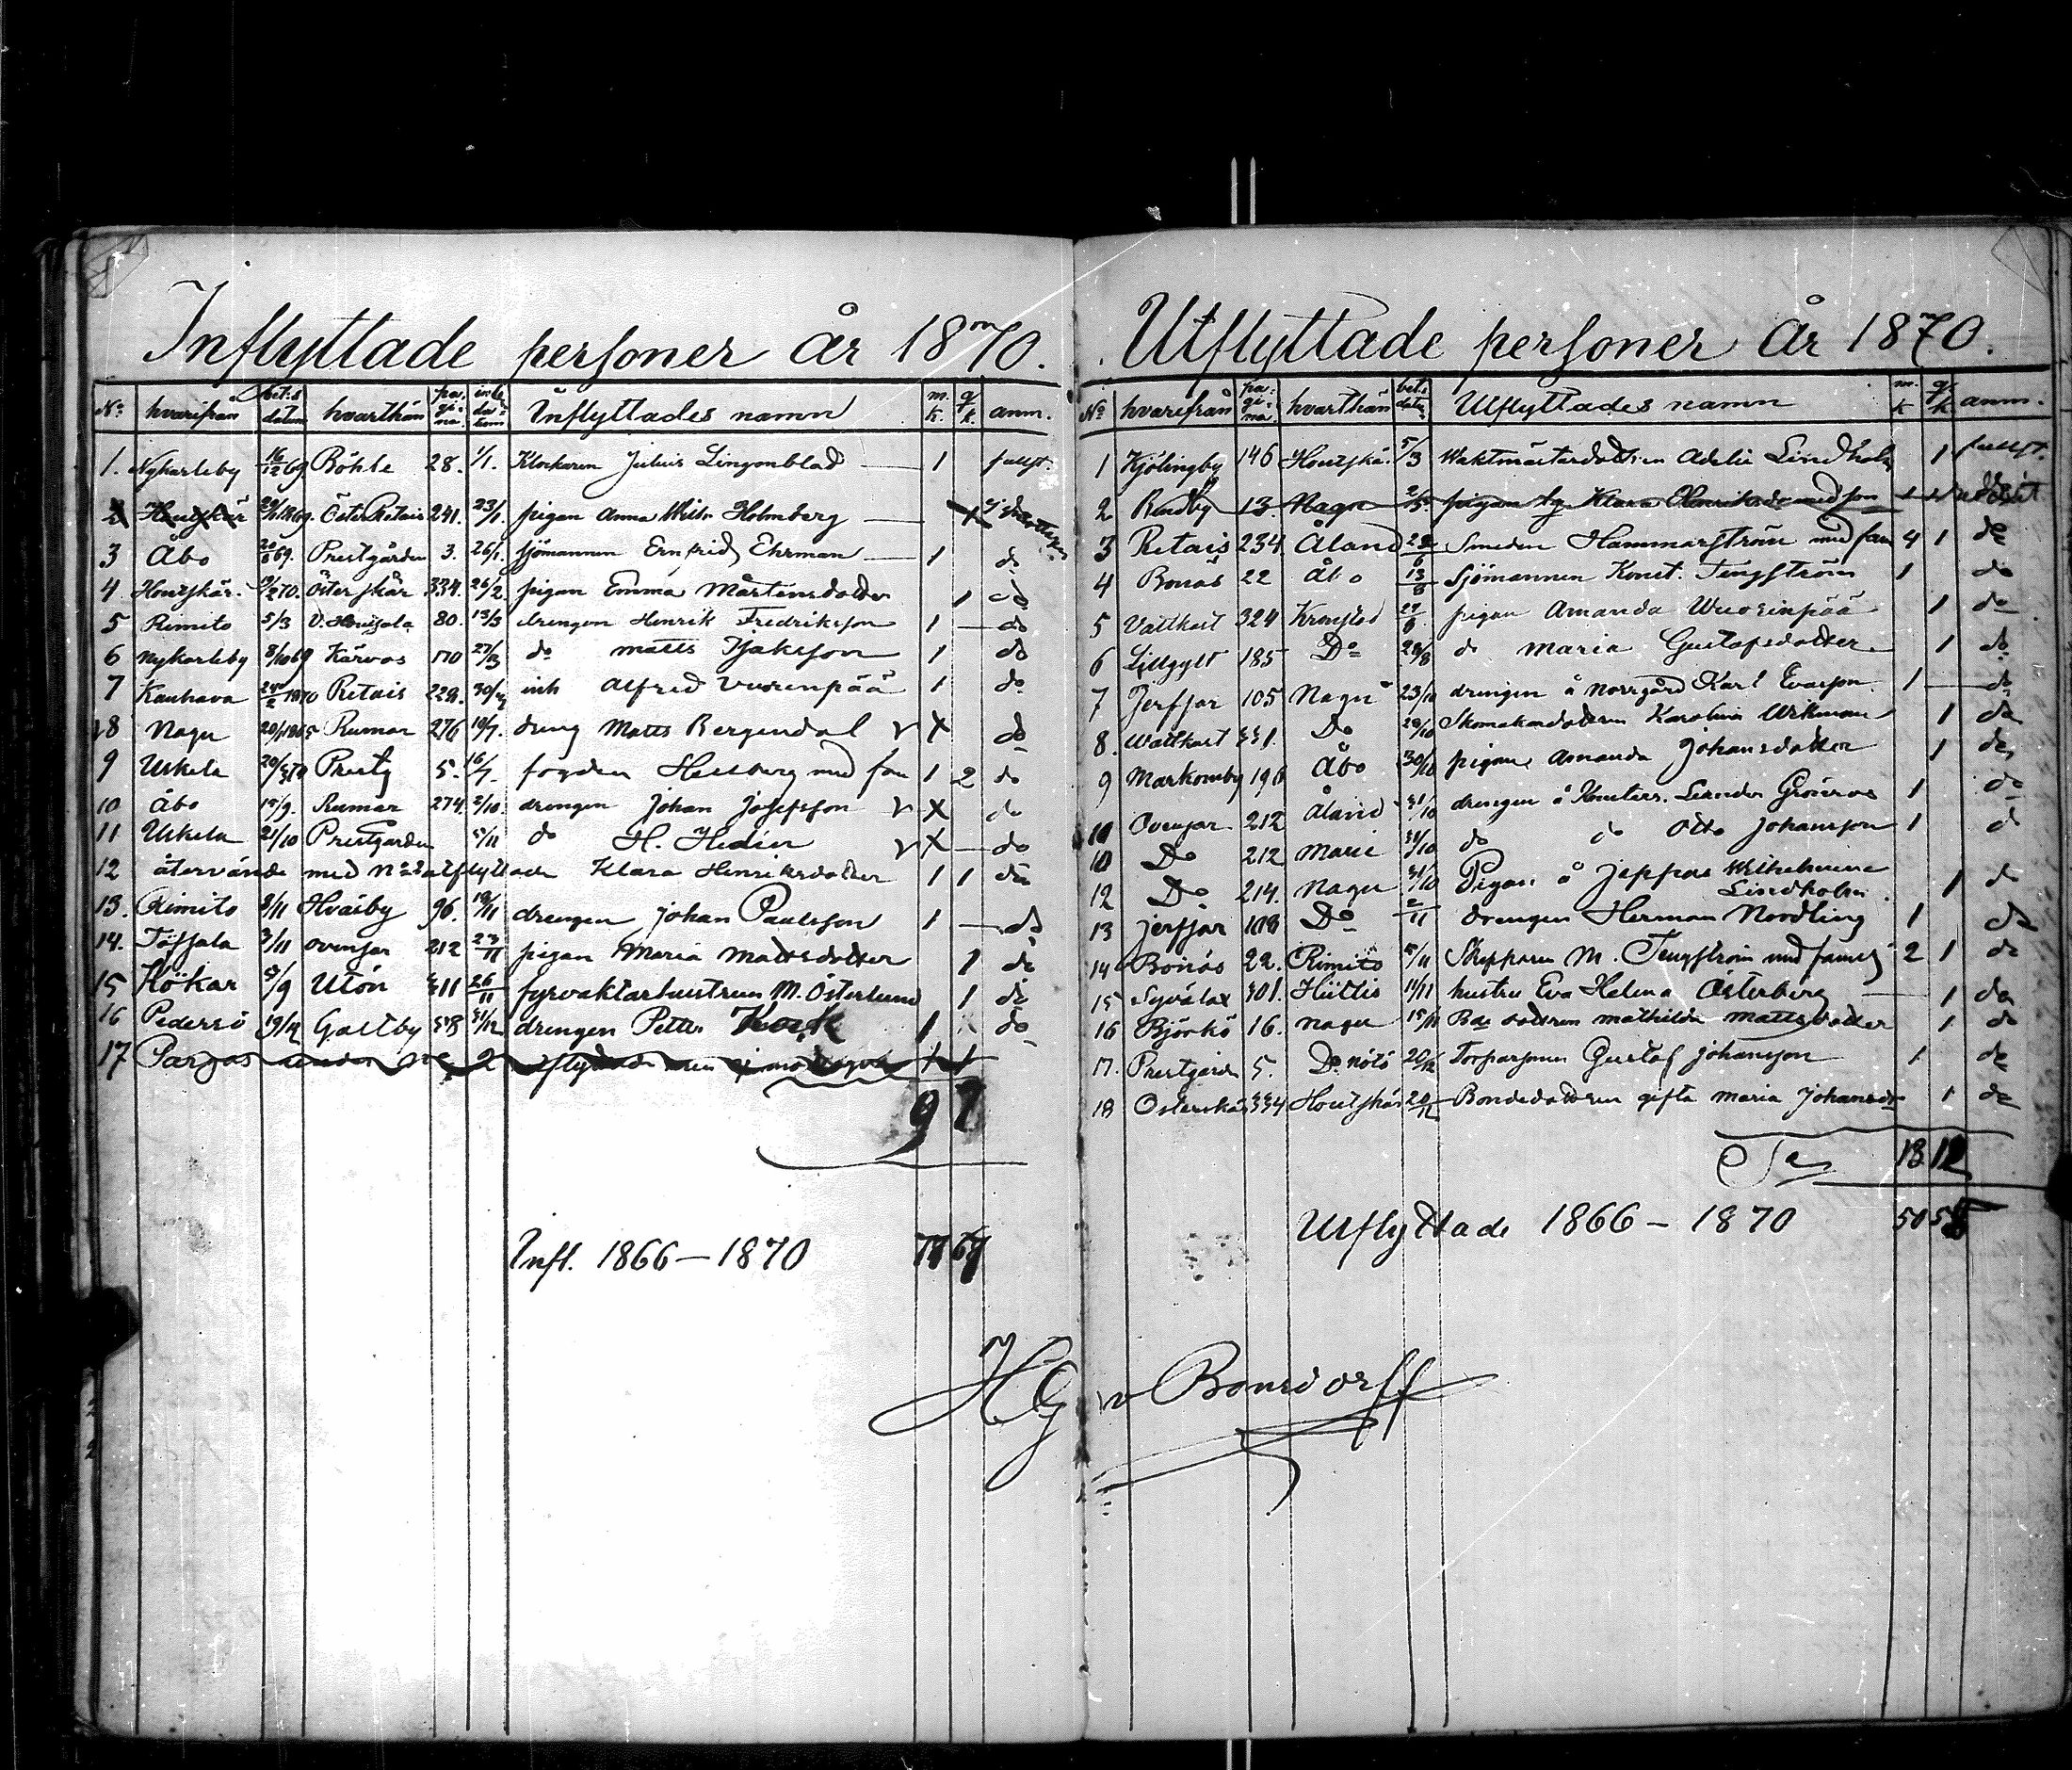 Inflyttade personer år 1870.
No hvarifrån bet:s datum hvarthän pagina Inflyttades namn m. k. q. k. anm.
1. Nykarleby 16/12 69 Böhle 28. 1/1. Klockaren Julius Lingonblad 1
2 Houtskär Öster Retais 241. 23/1. pigan Anna Holmberg
3 Åbo 69. Prestgården 3. 26/1. sjömannen Ernfrid Ehrman 1 do
4. Houtskär. 70. Österskär 334. 26/2. pigan Emma Mårtensdotter 1 do
5 Rimito 5/3 80. 13/3 drengen Henrik Fredriksson 1 do
6 Nykarleby 8/10 69 Kärvos 170 27/3 do Matts Isaksson 1 do
7 Kauhava 1870 Retais 229. inh Alfred Vuorenpää 1 do
8 Nagu Rumar 276 19/7. dreng Matts Bergendal v X do
9 Uskela Prestg 5. 16/7. fogden Hellberg med fam 1 2 do
10 Åbo 15/9. Rumar 274. 2/10. drengen Johan Josefsson v X do
11 Uskela 21/10 Prestgården 5/11 do H. Hedin v X do
12 återvände med No 2 utflyttade Klara Henriksdotter 1 1 do
13. Rimito 3/11 Hväsby 96. 19/11 drengen Johan Paulsson 1 do
14. Töfsala 3/11 ovensor 212 23/11 pigan Maria Mattsdotter 1 do
15 Kökar 5/9 Utön 311 26/11 fyrvaktarhustrun M. Österlund 1 do
16 Pedersö 19/12 Gastby 31/12 drengen Petter Kock 1 do
17 Pargas under No 2
9 7
Infl. 1866–1870
Utflyttade personer år 1870.
No hvarifrån pagina hvarthän bet:s dat. Utflyttades namn m. k q. k anm.
1 Kjölingby 146 Houtskär 5/3 Waktmästardottren Adelie Lindholm 1
2 Rendby 13. Nagu pigan Klara Henriksdr med son
3 Retais 234. Åland Smeden Hammarström med fam 4 1 do
4 Bonäs 22 Åbo 13/8 Sjömannen Konst. Tengström 1 do
5 Vattkast 324 Kronstad pigan Amanda Wuorinpää 1 do
6 Lillgylt 185 Do 28/8 do Maria Gustafsdotter 1 do
7 Jerfsor 105 Nagu 23/10 drengen å Norrgård Karl Evarson 1 do
8. Wattkast 331. Do 29/10 Skomakardottren Karolina Wikman 1 do
9 Markomby 196 Åbo 30/10 pigan Amanda Johansdotter 1 do
10 Ovensor 212 Åland 31/10 drengen å Leander Grönros 1 do
10 Do 212 Marie 31/10 do do Otto Johansson 1 do
12 Do 214. Nagu 31/10 Pigan å Jeppas Wilhelmina Lindholm 1 do
13 Jerfsor 108 Do 2/11 drengen Herman Nordling 1 do
14 Bonäs 22. Rimito 5/11 Skepparen M. Tengström med familj 2 1 do
15 301. Hiittis 11/11 hustru Eva Helena Österberg 1 do
16 Björkö 16. Nagu 15/11 Bdedottren Mathilda Mattsdotter 1 do
17. Prestgården 5. Do. Nötö 20/12 Torparsonen Gustaf Johansson 1 do
18 Österskär 334 Houtskär 20/12 Bondedottren gifta Maria Johansdr 1 do
Sa 13 12
Utflyttade 1866–1870
HG v Bonsdorff